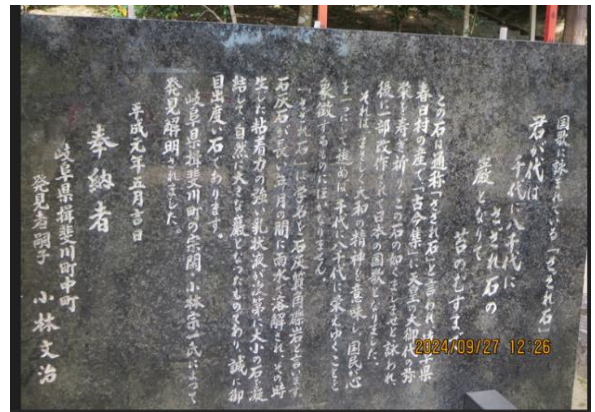 国歌に詠まれている「さざれ石」
君が代は
千代に八千代に
さざれ石の
巌となりて
苔のむすまで
この石は通称「さざれ石」と言われ、岐阜県
春日村の産で「古今集」に天皇の大御代の弥
栄を寿ぎ祈りこの石の如くましませと詠われ、
後に一部改作されて日本の国歌となりました。
それはまさしく大和の精神を意味し、国民が心
を一つにして極めれば、千代に八千代に栄えゆくことを
象徴するものにほかなりません。
「さざれ石」は学名を石灰質角礫岩と言います。
石灰石が長い年月の間に雨水で溶解され、その時
生じた粘着力の強い乳状液が次第に大小の石を凝
結して自然に大きな巌となったものであり、誠に御
目出度い石であります。
岐阜県揖斐川町の宗関 小林宗一氏によって
発見解明されました。
平成元年五月吉日
奉納者
岐阜県揖斐川町中町
発見者嗣子 小林文治
2024/09/27 12:26